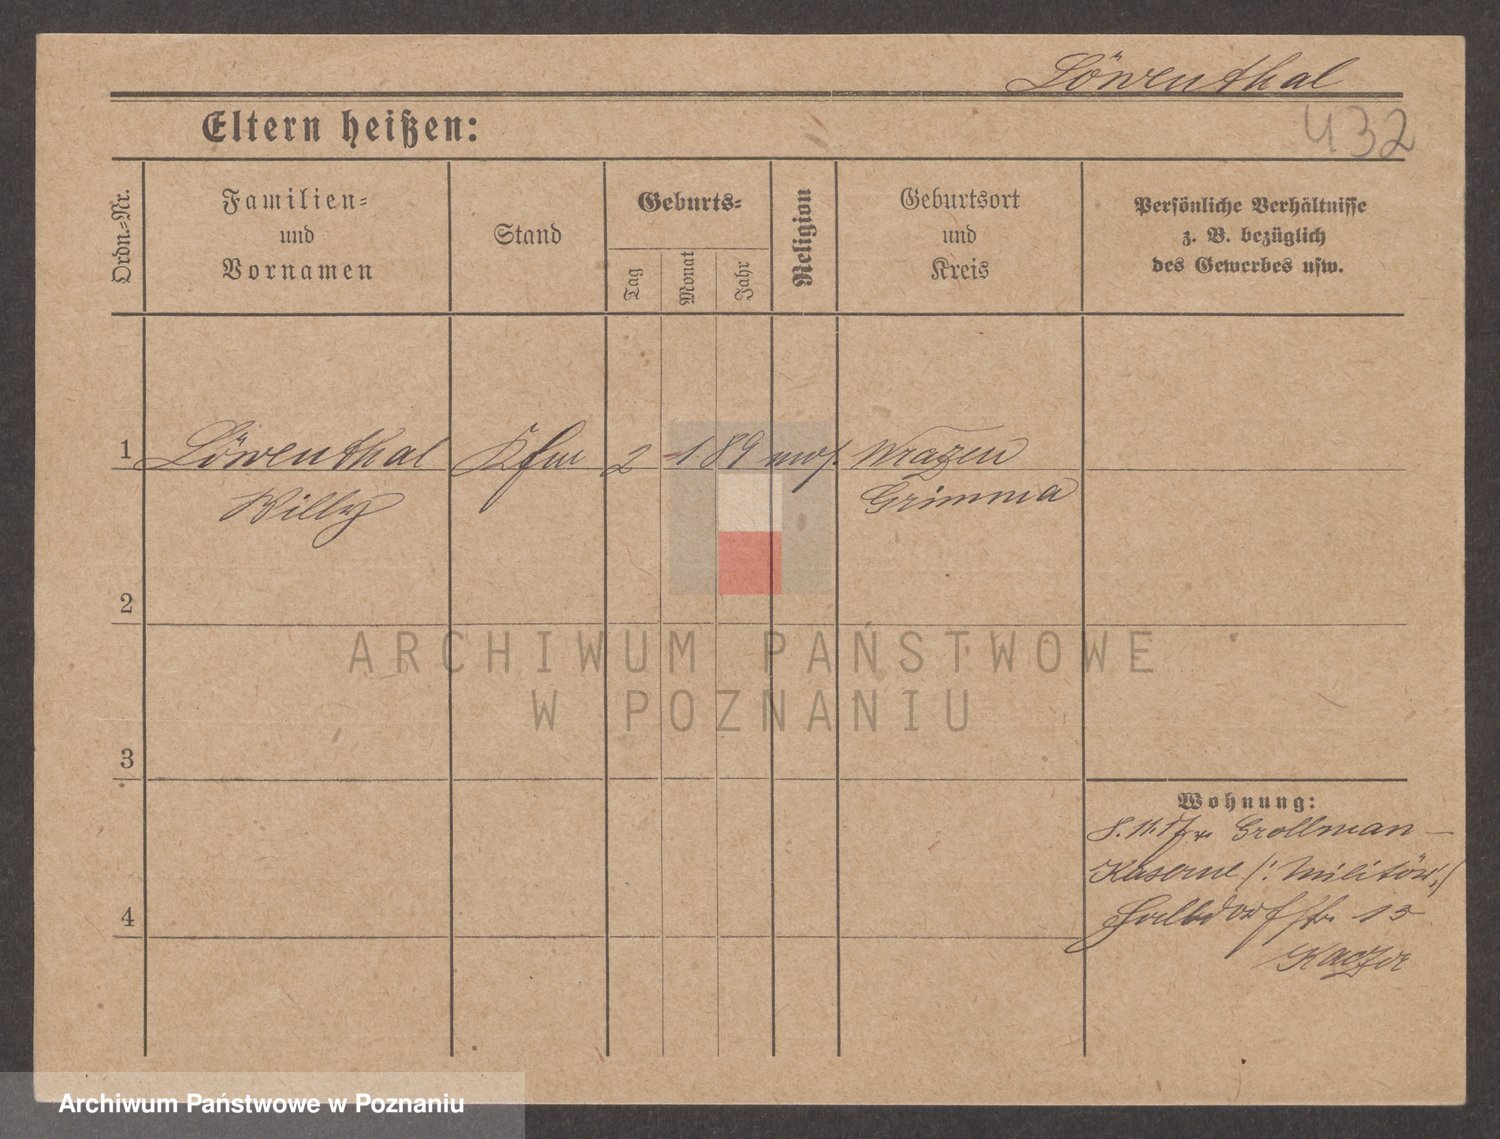 Löwenthal
Eltern heißen:
432
Ordn.-Nr.
Familien-
und
Vornamen
Stand
Geburts-
Tag
Monat
Jahr
Religion
Geburtsort
und
Kreis
Persönliche Verhältnisse
z. B. bezüglich
des Gewerbes usw.
1
Löwenthal Kfm 2 1 89 mos. Wrazen
Willy
Grimma
2
ARCHIWUM PAŃSTWOWE
W POZNANIU
3
Wohnung:
8.11.17 v. Grollman-
Kaserne /: Militär :/
13
4
Archiwum Państwowe w Poznaniu